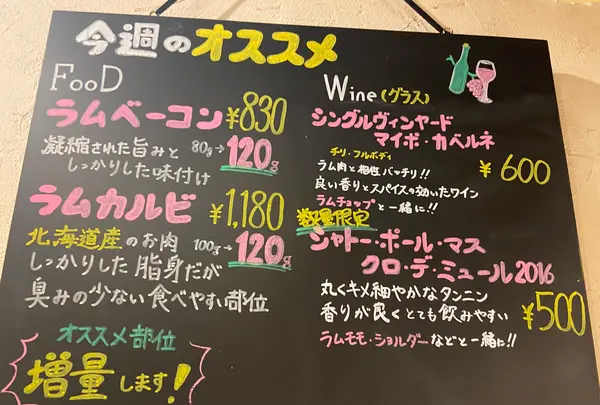 今週のオススメ
FooD
ラムベーコン ¥830
凝縮された旨みと 80g→120g
しっかりした味付け
ラムカルビ ¥1,180
北海道産のお肉 100g→120g
しっかりした脂身だが
臭みの少ない食べやすい部位
オススメ部位
増量します!
Wine(グラス)
シングルヴィンヤード
マイポ・カベルネ
チリ・フルボディ
¥600
ラム肉と相性バッチリ!!
良い香りとスパイスの効いたワイン
ラムチョップと一緒に!!
数量限定
シャトー・ポール・マス
クロ・デ・ミュール2016
丸くキメ細やかなタンニン
香りが良くとても飲みやすい ¥500
ラムモモ・ショルダーなどと一緒に!!